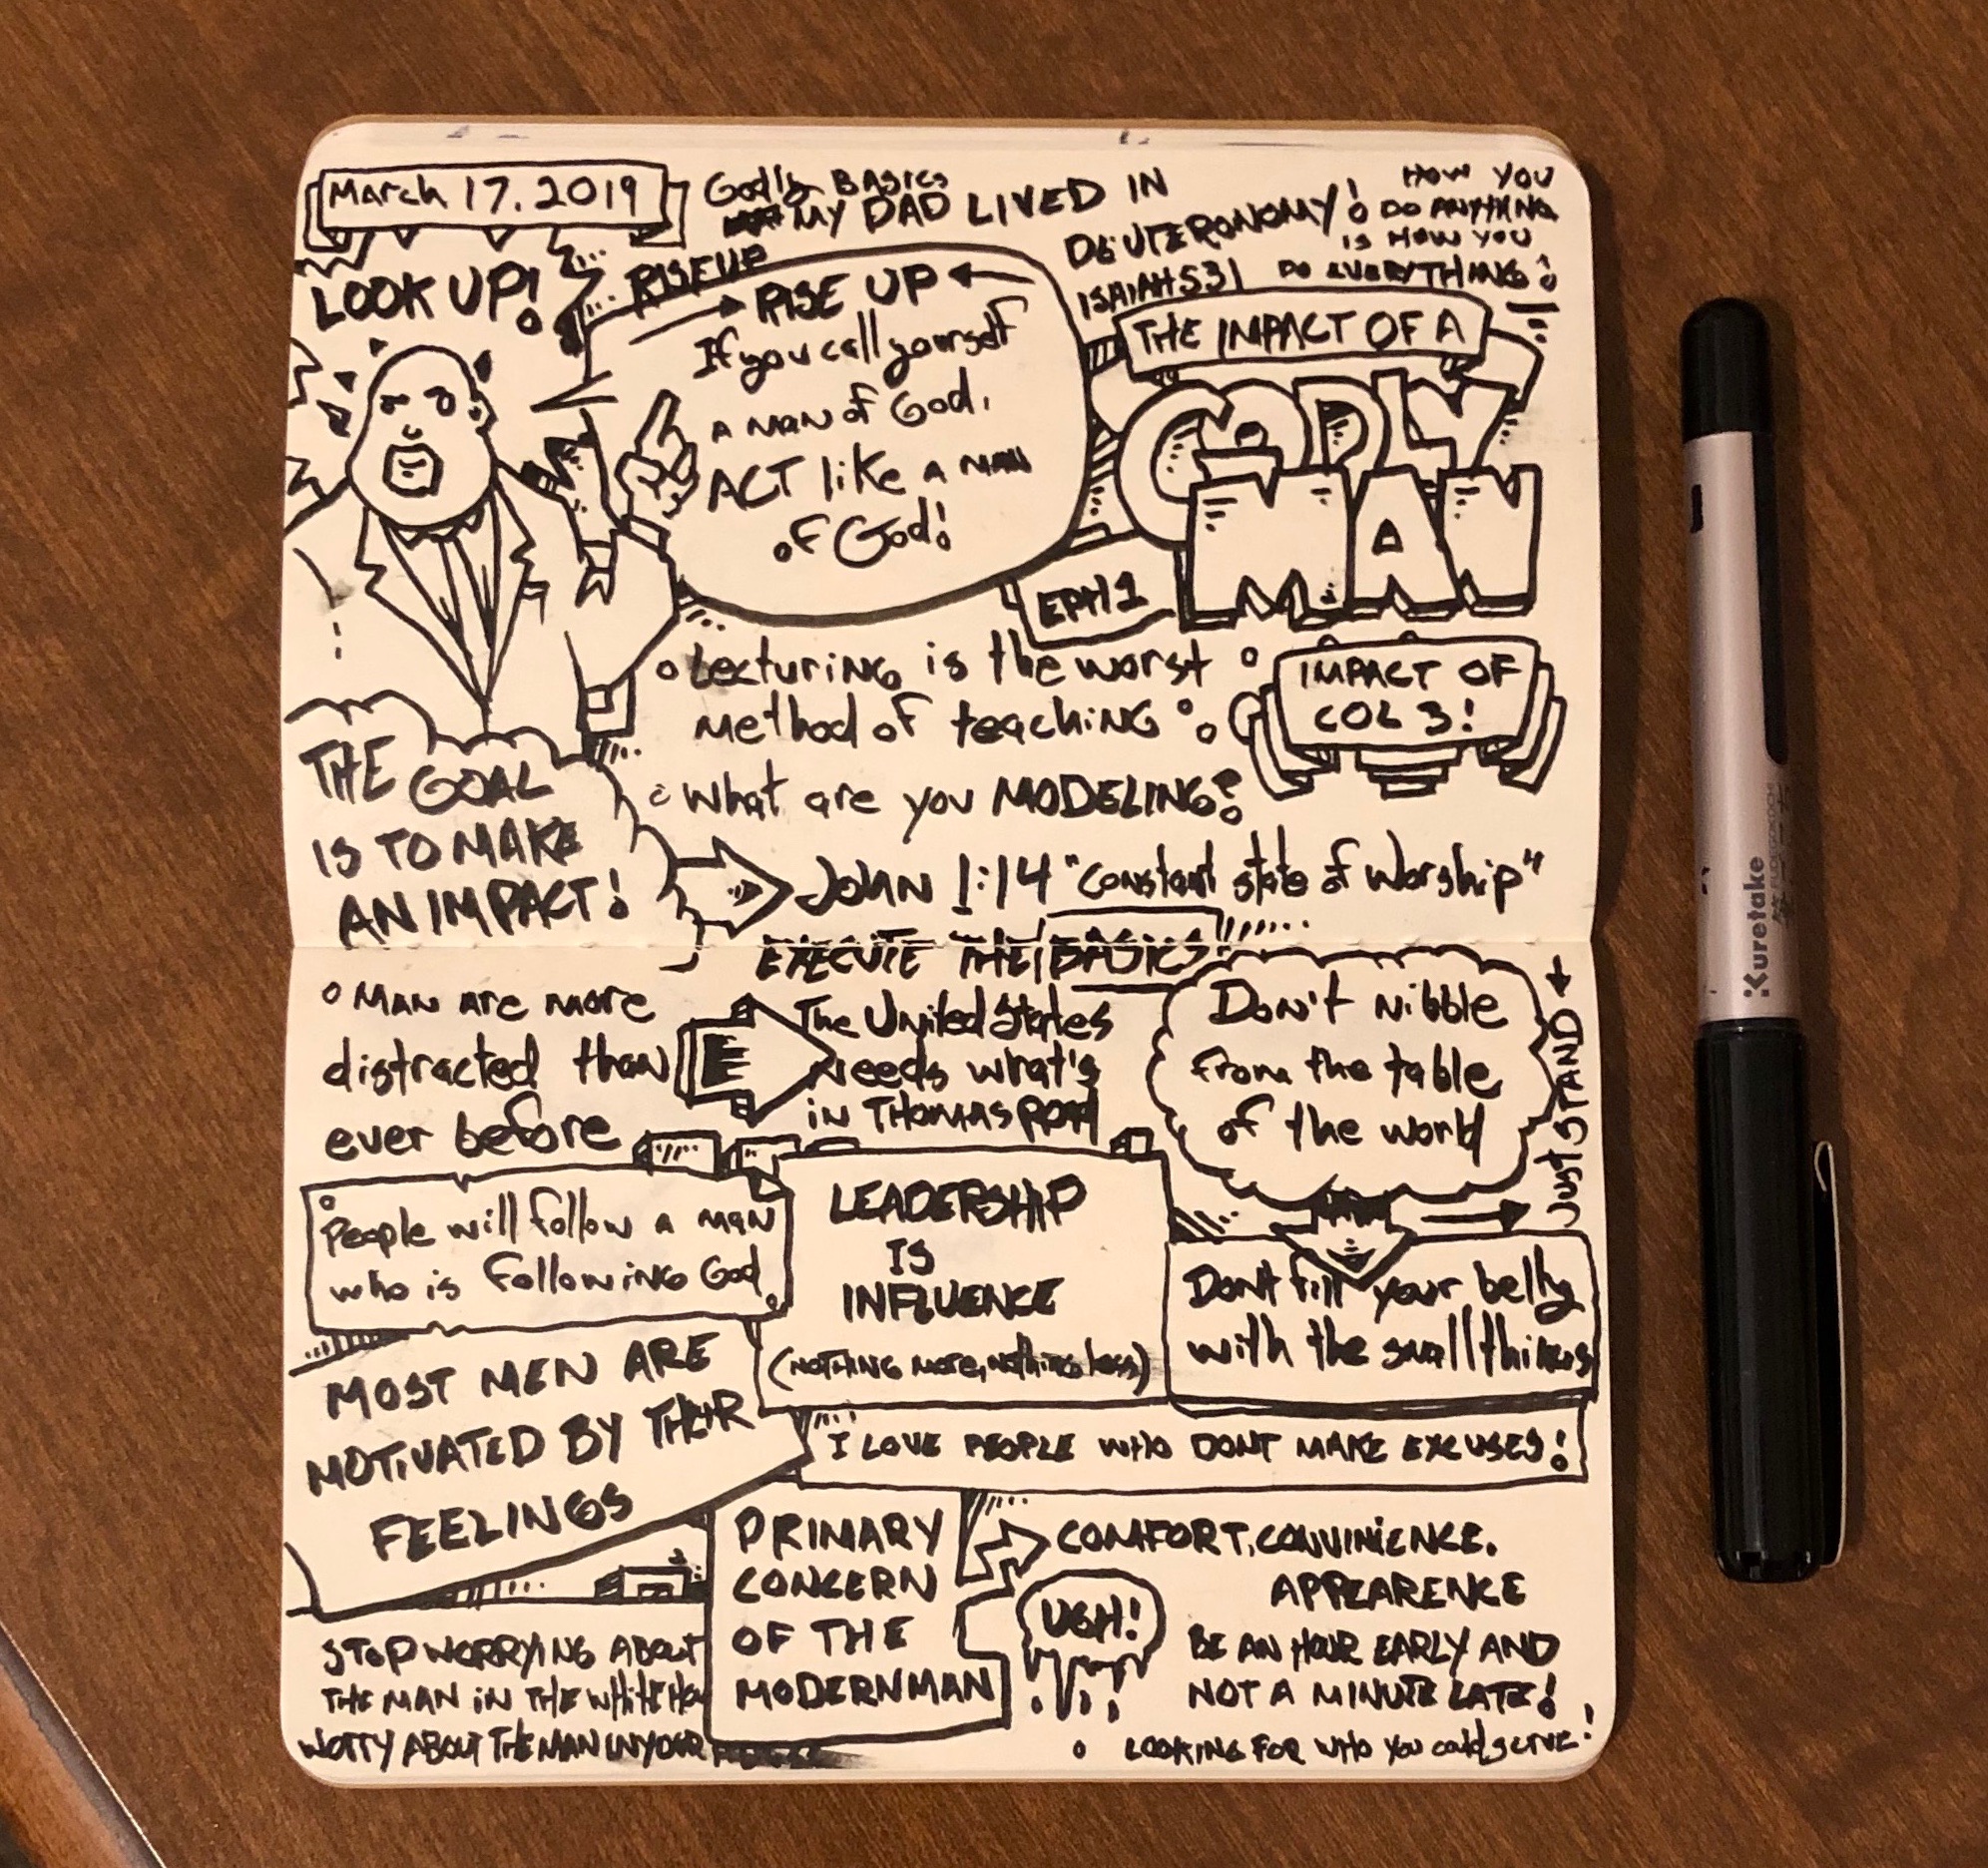 March 17. 2019
Godly BASICS
MY DAD LIVED IN
DEUTERONOMY!
ISAIAH 53
HOW YOU
DO ANYTHING
IS HOW YOU
DO EVERYTHING!
LOOK UP!
RISE UP
RISE UP
If you call yourself
A MAN of God,
ACT like A MAN
of God!
THE IMPACT OF A
GODLY
MAN
EPH 1
Lecturing is the worst
method of teaching
IMPACT OF
COL 3!
What are you MODELING?
THE GOAL
IS TO MAKE
AN IMPACT!
JOHN 1:14 "constant state of worship"
EXECUTE THE BASICS!
MAN ARE MORE
distracted than
ever before
The United States
Needs what's
in THOMAS ROAD
Don't Nibble
from the table
of the world
JUST STAND
People will follow a man
who is following God
LEADERSHIP
IS
INFLUENCE
(NOTHING more, nothing less)
Don't fill your belly
with the small things
MOST MEN ARE
MOTIVATED BY THEIR
FEELINGS
I LOVE PEOPLE WHO DONT MAKE EXCUSES!
PRIMARY
CONCERN
OF THE
MODERN MAN
COMFORT, CONVINIENCE.
APPEARENCE
UGH!
BE AN HOUR EARLY AND
NOT A MINUTE LATE!
LOOKING FOR WHO YOU COULD SERVE!
STOP WORRYING ABOUT
THE MAN IN THE WHITE HOU
WORRY ABOUT THE MAN IN YOUR HOUSE
Kuretake